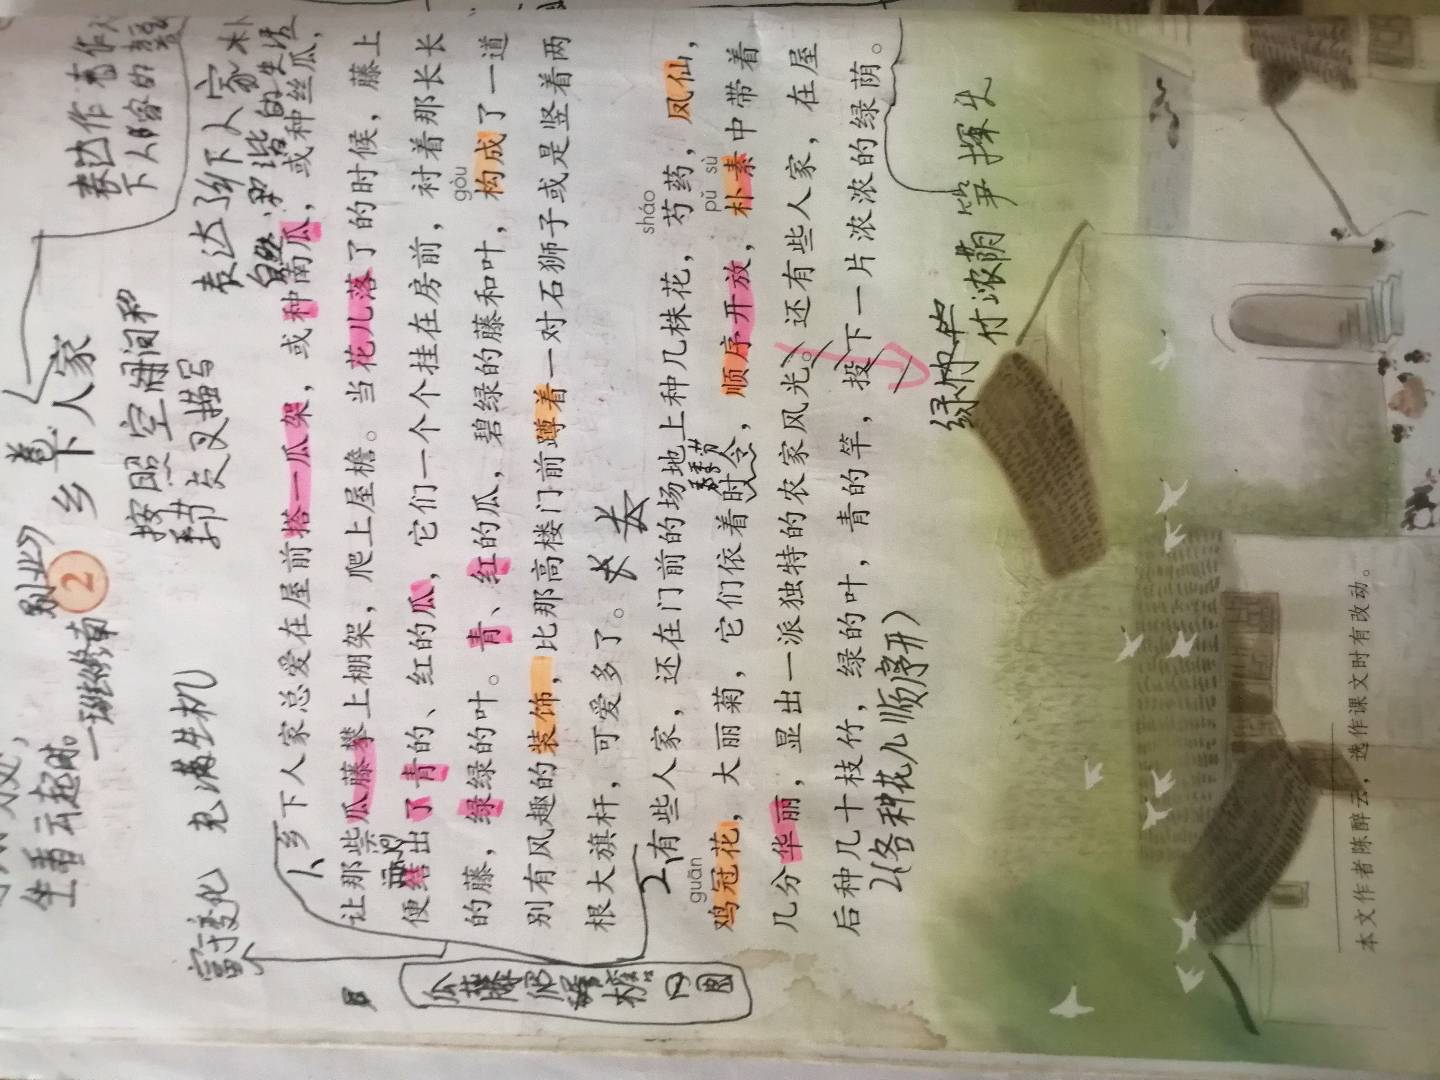 别业》
生看云起时。
表达作者
下人
2 乡下人家
按照空间和
季节交叉描写
表达乡下人家朴
自然、和谐的生活
富于变化 充满生机
1、乡下人家总爱在屋前搭一瓜架，或种南瓜，或种丝瓜，
让那些瓜藤攀上棚架，爬上屋檐。当花儿落了的时候，藤上
便结出了青的、红的瓜，它们一个个挂在房前，衬着那长长
gòu
的藤，绿绿的叶。青、红的瓜，碧绿的藤和叶，构成了一道
别有风趣的装饰，比那高楼门前蹲着一对石狮子或是竖着两
根大旗杆，可爱多了。
sháo
2、有些人家，还在门前的场地上种几株花，芍药，凤仙，
季节
guān pǔ sù
鸡冠花，大丽菊，它们依着时令，顺序开放，朴素中带着
几分华丽，显出一派独特的农家风光。还有些人家，在屋
后种几十枝竹，绿的叶，青的竿，投下一片浓浓的绿荫。
2(各种花儿顺序开)
竹浓荫 笋探头
瓜藤
檐
图
本文作者陈醉云，选作课文时有改动。